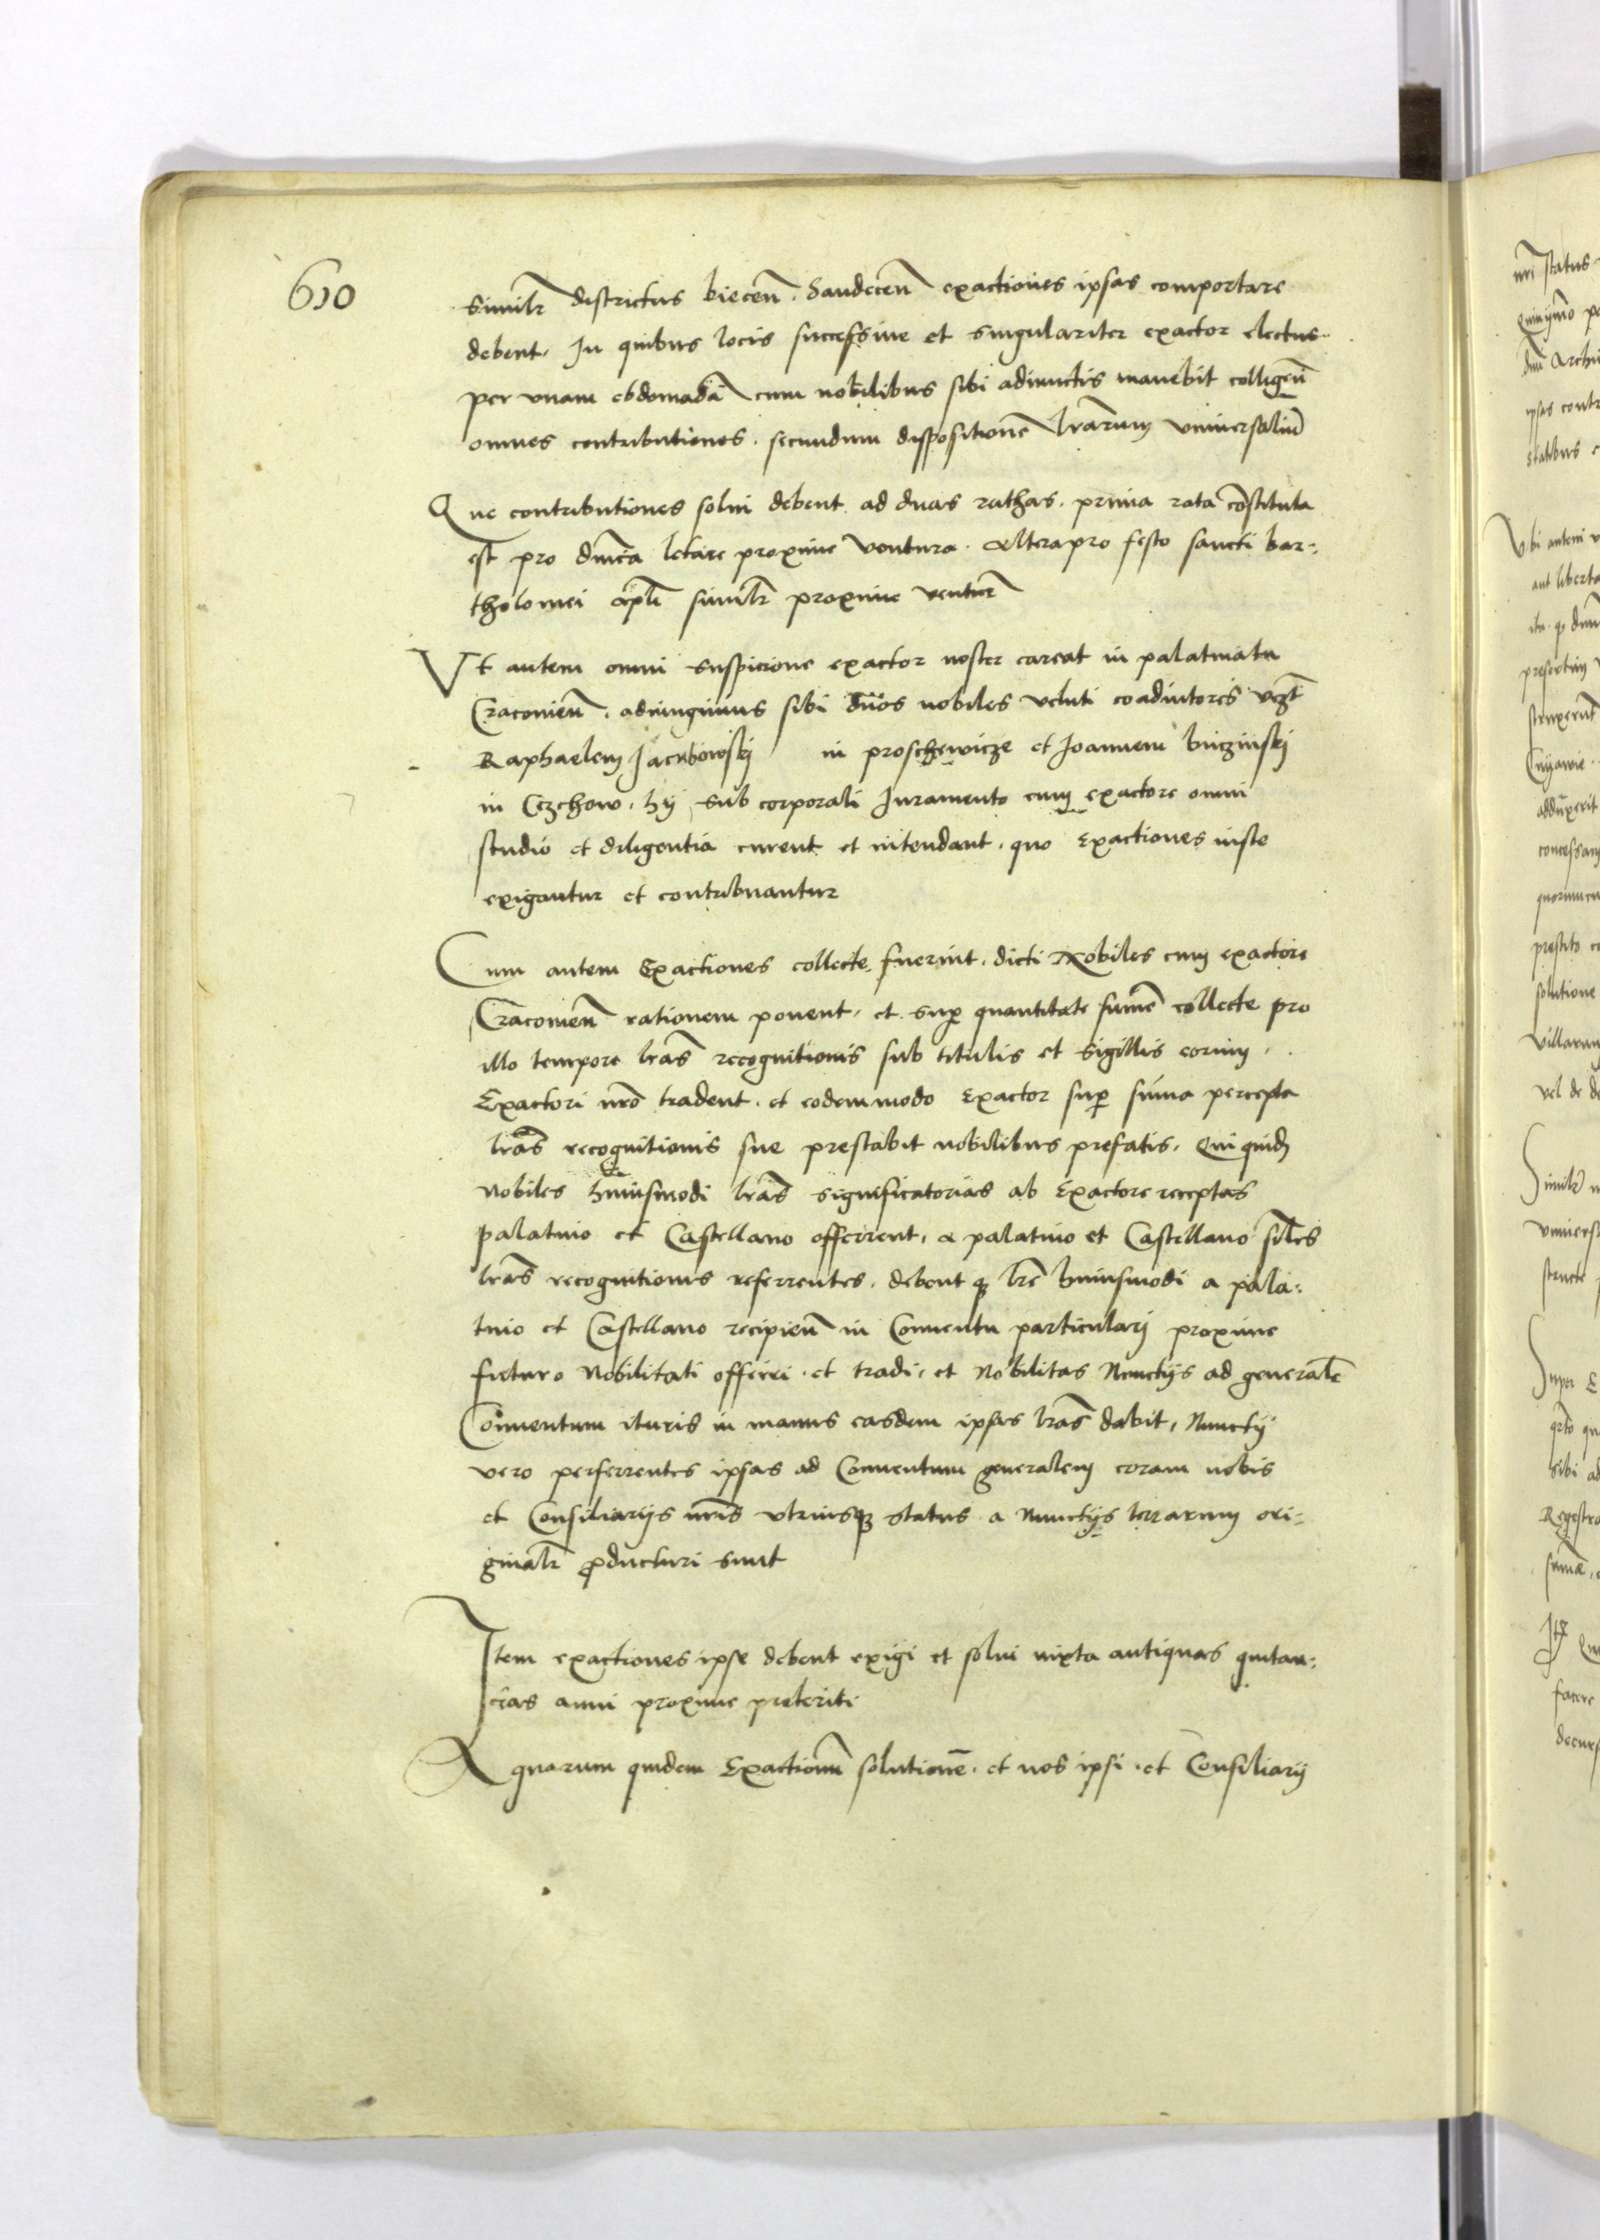 610
similr districtus biecen̄. Sandecen̄ exactiones ipsas comportare
debent. In quibus locis successiue et singulariter exactor electus
per vnam ebdomadā cum nobilibus sibi adiunctis manebit colligen̄
omnes contributiones. secundum dispositionē lrārum vniuersaliū
Que contributiones solui debent ad duas rathas. prima rata cōstituta
est pro dn̄ica letare proxime ventura. altera pro festo sancti bar:
tholomei apl̄i similr proxime ventur̄
Vt autem omni suspicione exactor noster careat in palatinatu
Cracouien̄. adiungimus sibi duos nobiles veluti coadiutores vꝫt
Raphaelem Jacubowskj in proschewicze et Joannem buczinskj
in Czchow. hij sub corporali Juramento cum exactore omni
studio et diligentia curent et intendant. quo exactiones iuste
exigantur et contribuantur
Cum autem Exactiones collecte fuerint. dicti Nobiles cum exactore
Cracouien̄ rationem ponent. et sup̱ quantitate sum̄e collecte pro
illo tempore lrās recognitionis sub titulis et sigillis eorum.
Exactori nrō tradent. et eodem modo Exactor sup̱ sum̄a percepta
lrās recognitionis sue prestabit nobilibus prefatis. Qui quidē
nobiles huiusmodi lrās significatorias ab Exactore receptas
palatino et Castellano offerrent. a palatino et Castellano siles
lrās recognitionis referrentes. debentqꝫ lrē huiusmodi a pala:
tino et Castellano recipien̄ in Conuentu particularj proxime
futuro Nobilitati offerri. et tradi. et Nobilitas Nunctijs ad generalē
Conuentum ituris in manus easdem ipsas lrās dabit. Nunctij
vero perferrentes ipsas ad Conuentum generalem coram nobis
et Consiliarijs nrīs vtriusqꝫ status a Nunctijs terrarum ori:
ginalr̄ ꝓducturi sunt
Item exactiones ipse debent exigi et solui iuxta antiquas quitan:
cias anni proxime preteriti
A quarum quidem Exactionū solutione. et nos ipsi. et Consiliarij